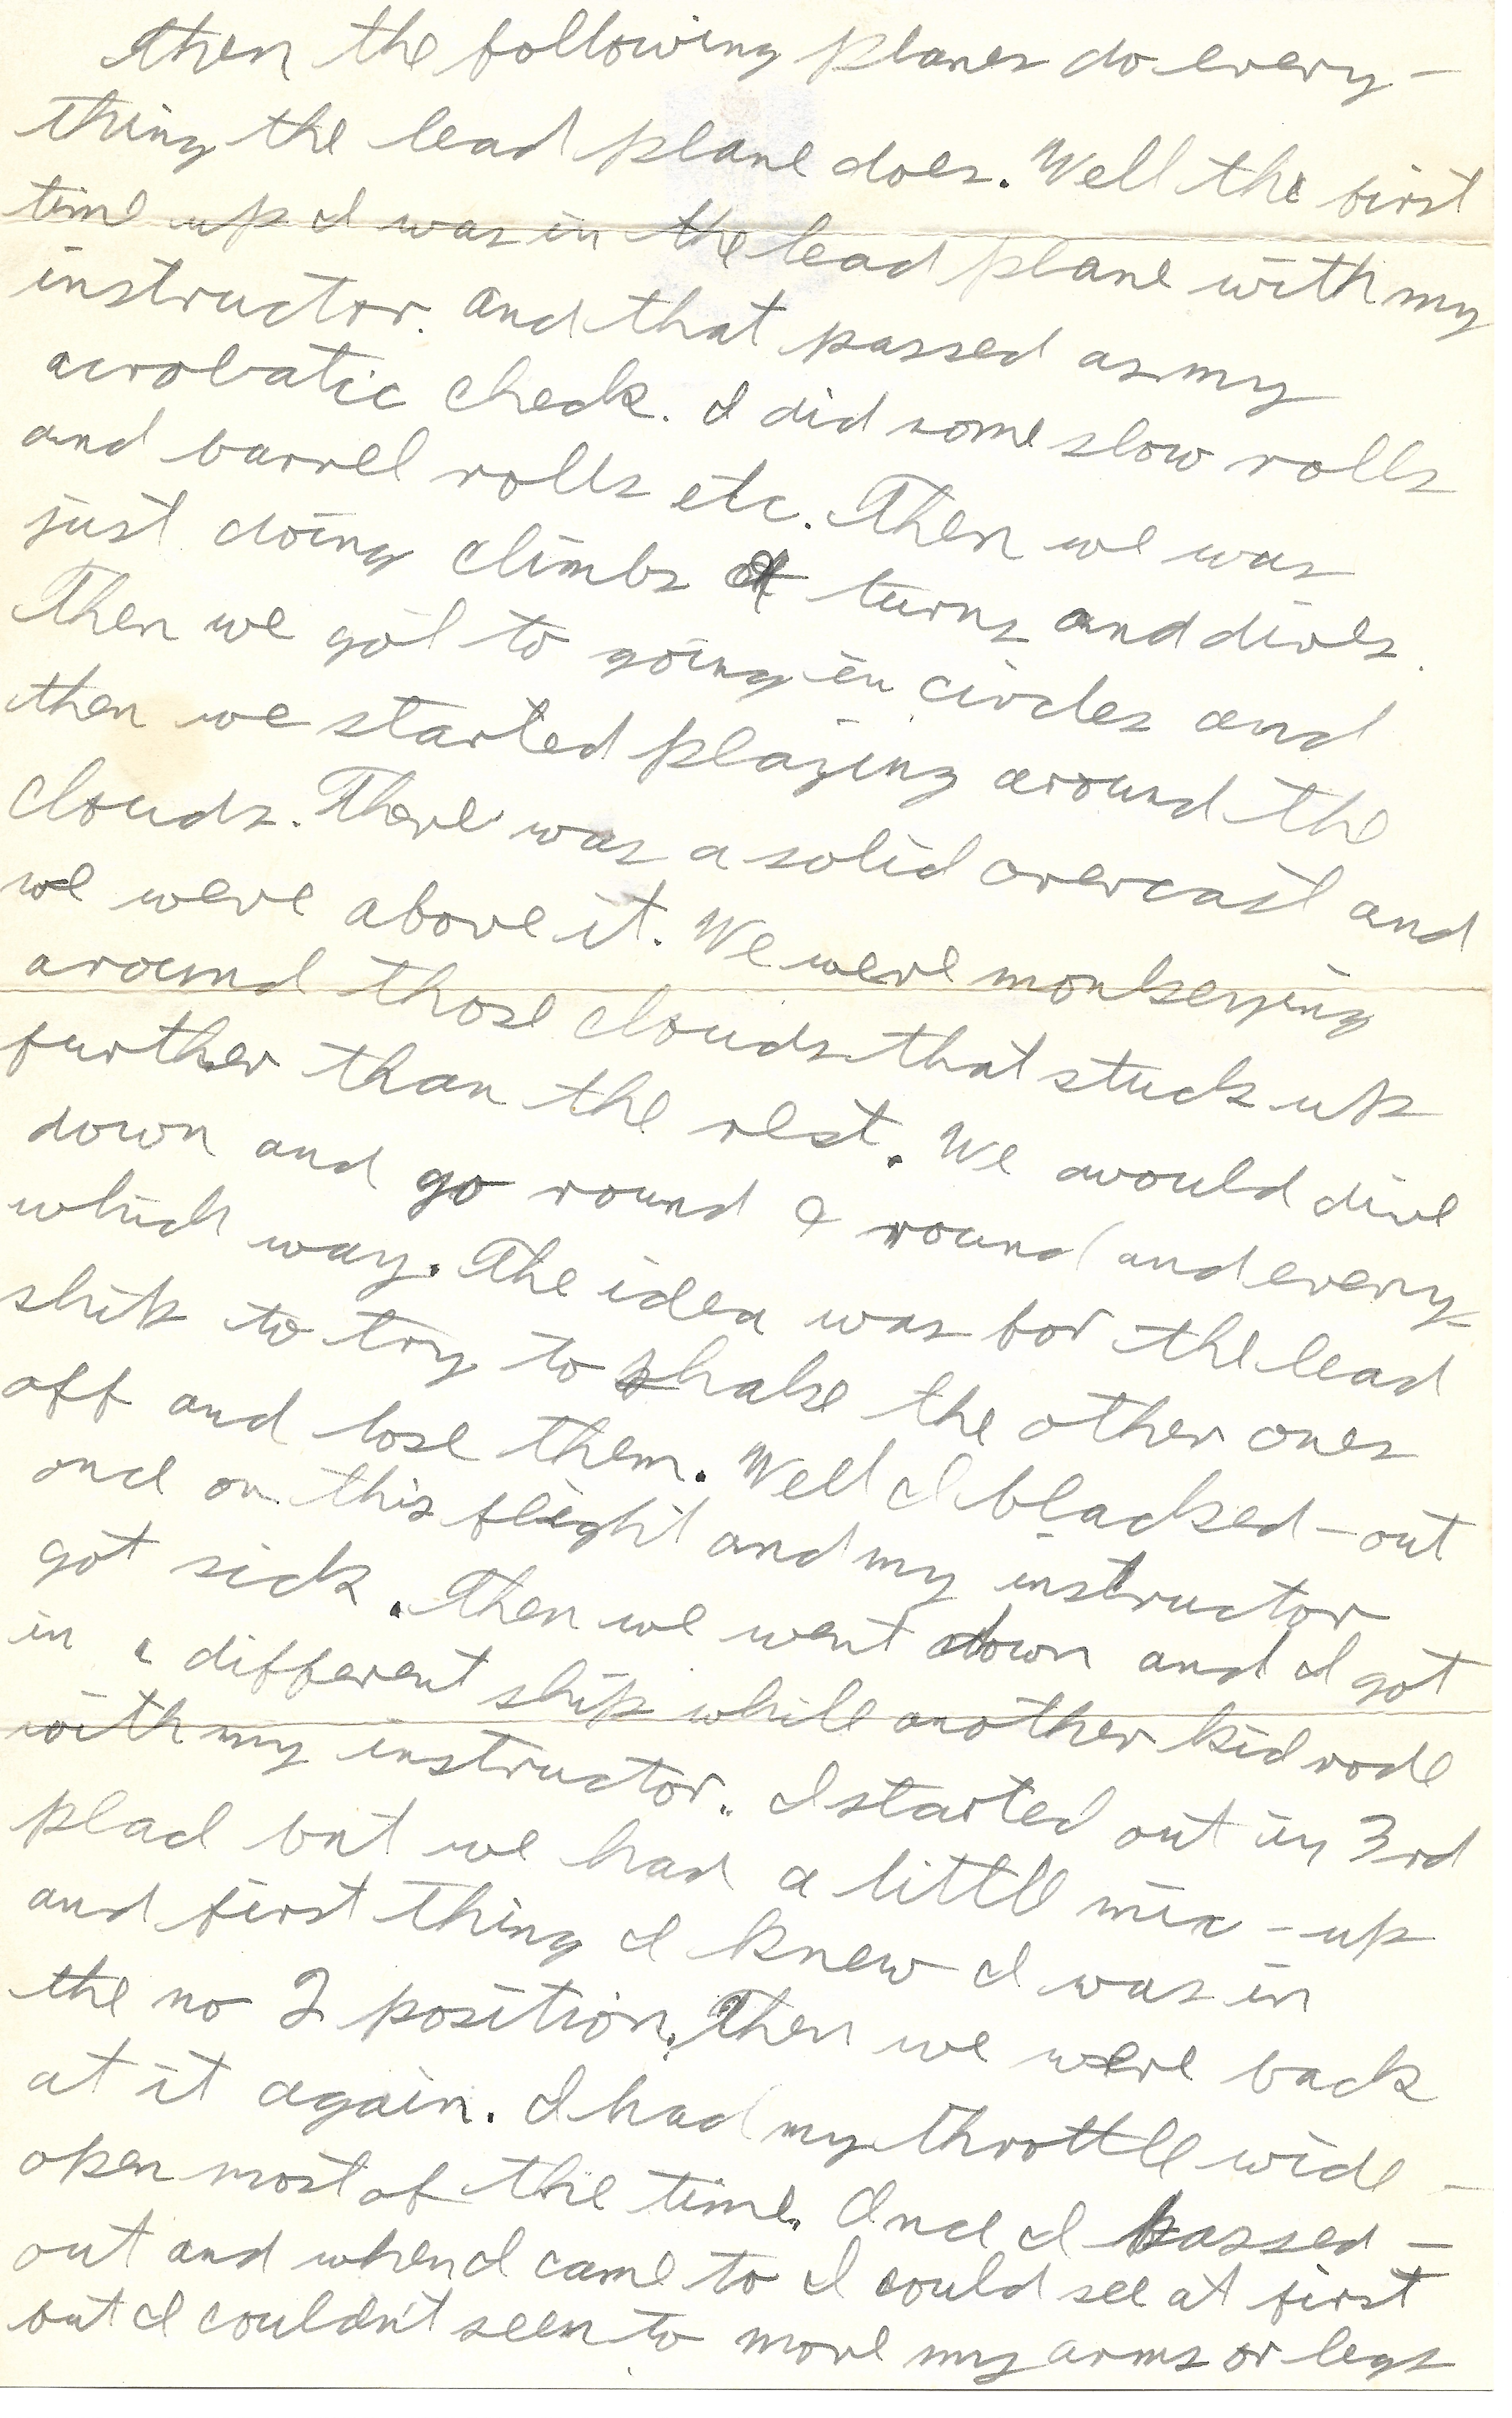 then the following planes do every-
thing the lead plane does. Well the first
time up I was in the lead plane with my
instructor. and that passed as my
acrobatic check. I did some slow rolls
and barrel rolls etc. Then we was
just doing climbs & turns and dives.
Then we got to going in circles and
then we started playing around the
clouds. There was a solid overcast and
we were above it. We were monkeying
around those clouds that stuck up
further than the rest. We would dive
down and go round & round and every-
which way. The idea was for the lead
ship to try to shake the other ones
off and lose them. Well I blacked-out
once on this flight and my instructor
got sick. Then we went down and I got
in a different ship while another kid rode
with my instructor. I started out in 3rd
place but we had a little mix-up
and first thing I knew I was in
the no 2 position. Then we were back
at it again. I had my throttle wide-
open most of the time. Once I passed-
out and when I came to I could see at first
but I couldn't seem to move my arms or legs